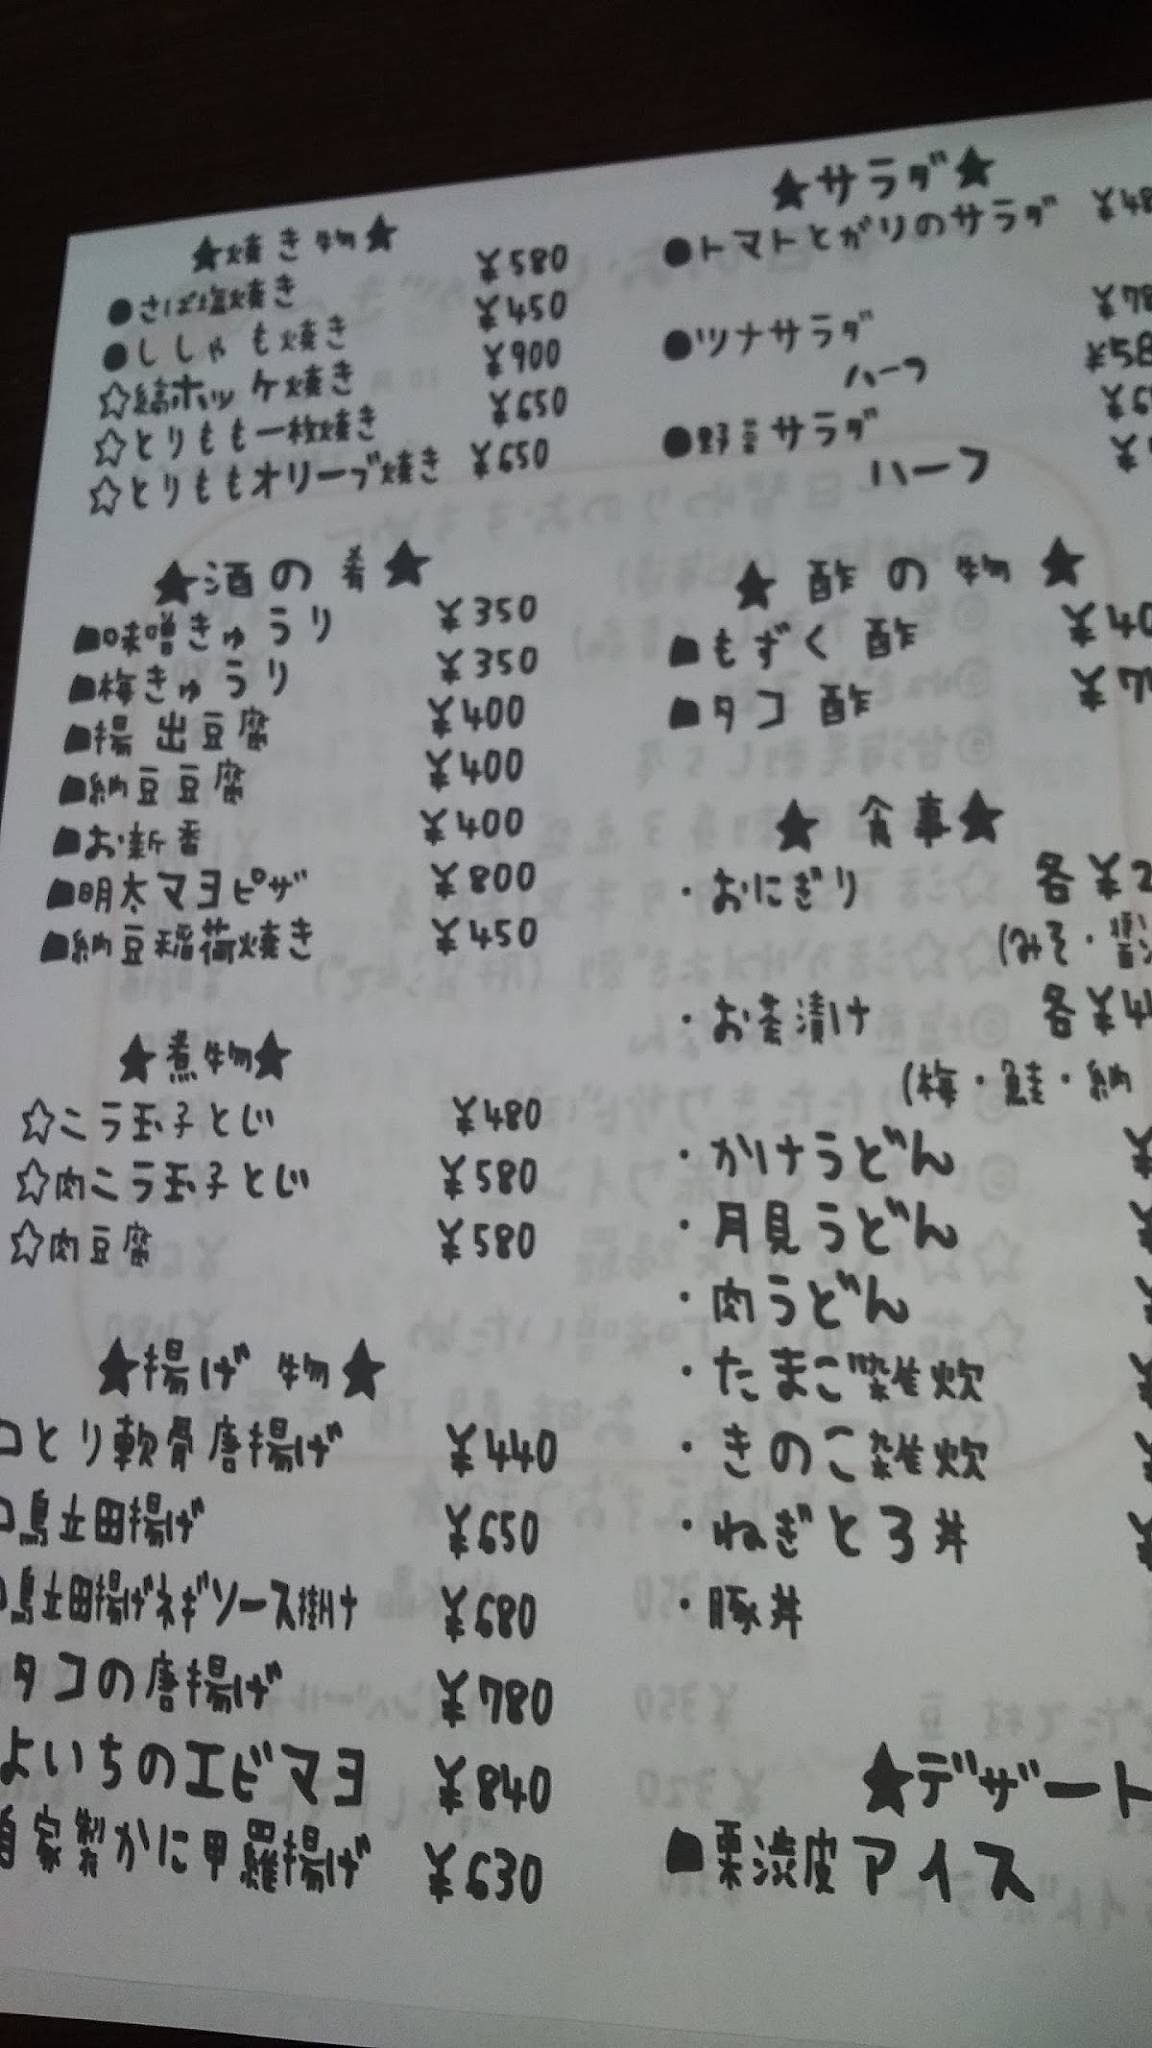 ★焼き物★
●さば塩焼き ¥580
●ししゃも焼き ¥450
☆縞ホッケ焼き ¥900
☆とりもも一枚焼き ¥650
☆とりももオリーブ焼き ¥650
★酒の肴★
■味噌きゅうり ¥350
■梅きゅうり ¥350
■揚出豆腐 ¥400
■納豆豆腐 ¥400
■お新香 ¥400
■明太マヨピザ ¥800
■納豆稲荷焼き ¥450
★煮物★
☆ニラ玉子とじ ¥480
☆肉ニラ玉子とじ ¥580
☆肉豆腐 ¥580
★揚げ物★
とり軟骨唐揚げ ¥440
鳥立田揚げ ¥650
鳥立田揚げネギソース掛け ¥680
タコの唐揚げ ¥780
よいちのエビマヨ ¥840
自家製かに甲羅揚げ ¥630
★サラダ★
●トマトとガリのサラダ ¥48
●ツナサラダ ¥78
ハーフ ¥58
●野菜サラダ ¥6
ハーフ ¥
★酢の物★
■もずく酢 ¥40
■タコ酢 ¥7
★食事★
・おにぎり 各¥2
(みそ・
・お茶漬け 各¥4
(梅・鮭・納
・かけうどん ¥
・月見うどん ¥
・肉うどん ¥
・たまご雑炊 ¥
・きのこ雑炊 ¥
・ねぎとろ丼 ¥
・豚丼
★デザート
■栗渋皮アイス